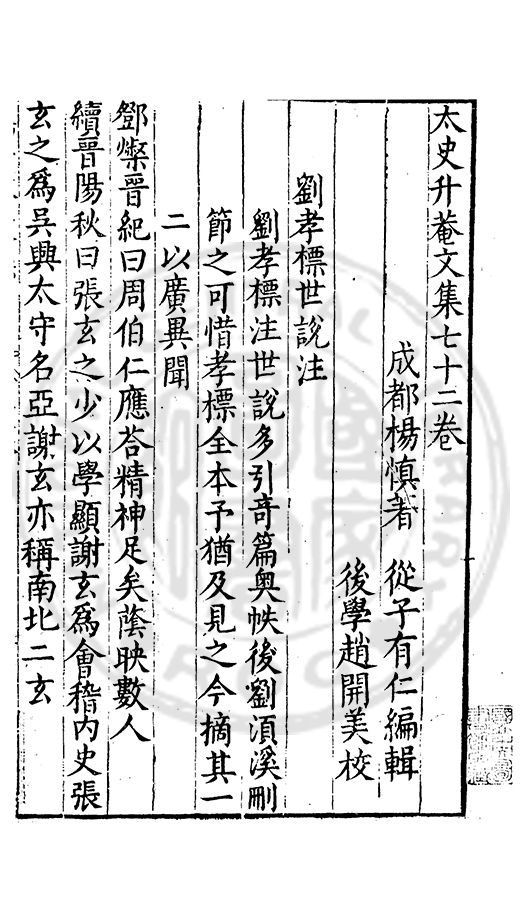 太史升菴文集七十二卷
成都楊慎著 從子有仁編輯
後學趙開美校
劉孝標世說注
劉孝標注世說多引奇篇奧帙後劉湏溪刪
節之可惜孝標全本予猶及見之今摘其一
二以廣異聞
鄧粲晉紀曰周伯仁應荅精神足矣蔭映數人
續晉陽秋曰張玄之少以學顯謝玄爲會稽內史張
玄之爲吳興太守名亞謝玄亦稱南北二玄